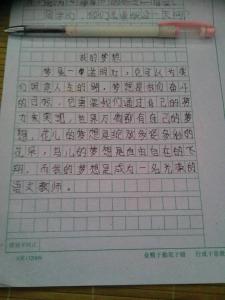 我的梦想
梦是一盏明灯，它可以为我
们照亮人生的路。梦想是我们奋斗
的目标，它需要我们通过自己的努
力来实现。世界万物都有自己的梦
想，花儿的梦想是绽放多姿多彩的
花朵，鸟儿的梦想是自由自在的飞
翔，而我的梦想是成为一名光荣的
语文教师。